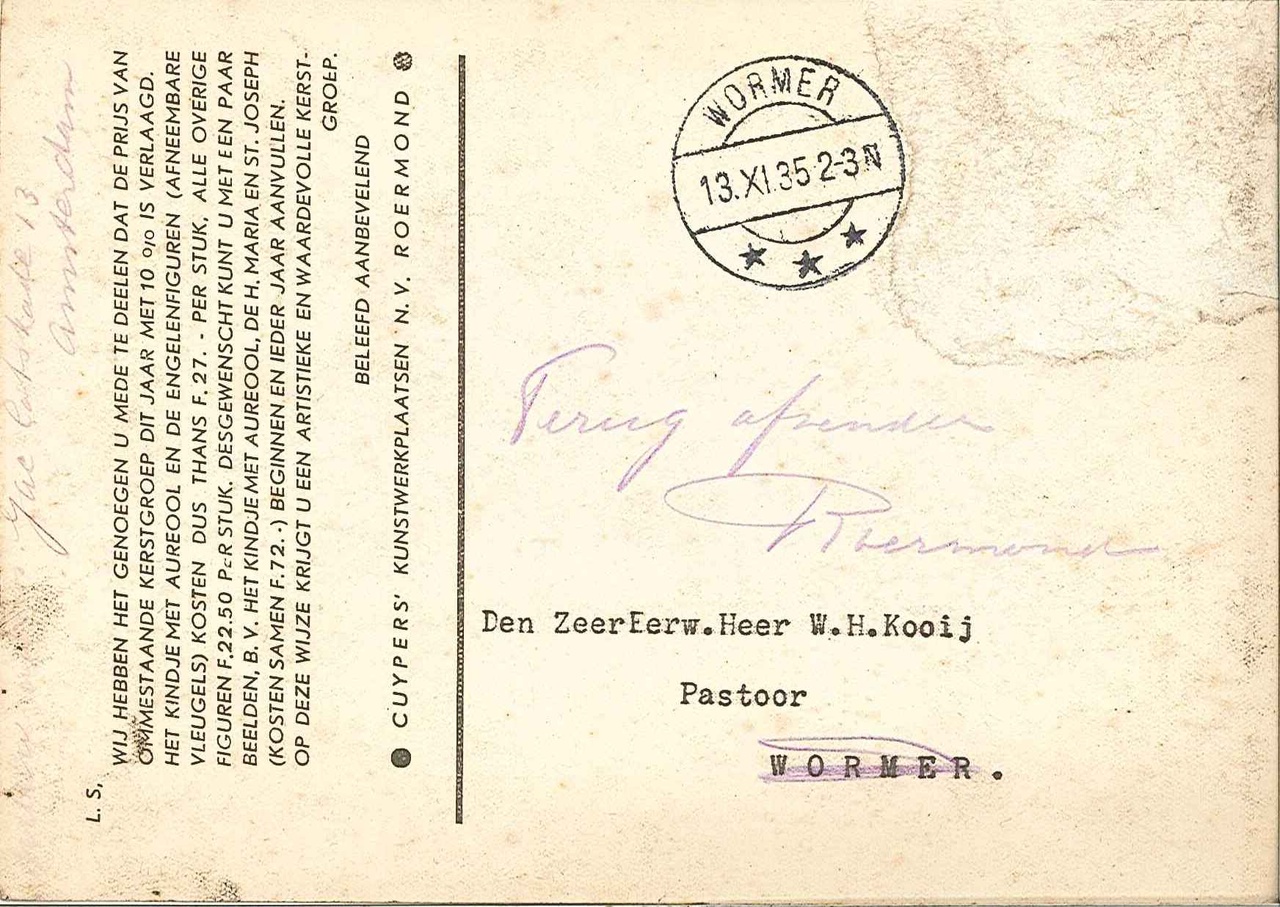 L. S,
WIJ HEBBEN HET GENOEGEN U MEDE TE DEELEN DAT DE PRIJS VAN
OMMESTAANDE KERSTGROEP DIT JAAR MET 10 0/0 IS VERLAAGD.
HET KINDJE MET AUREOOL EN DE ENGELENFIGUREN (AFNEEMBARE
VLEUGELS) KOSTEN DUS THANS F. 27. - PER STUK. ALLE OVERIGE
FIGUREN F.22.50 PER STUK. DESGEWENSCHT KUNT U MET EEN PAAR
BEELDEN, B. V. HET KINDJE MET AUREOOL, DE H. MARIA EN ST. JOSEPH
(KOSTEN SAMEN F. 72. -) BEGINNEN EN IEDER JAAR AANVULLEN.
OP DEZE WIJZE KRIJGT U EEN ARTISTIEKE EN WAARDEVOLLE KERST-
GROEP.
BELEEFD AANBEVELEND
CUYPERS' KUNSTWERKPLAATSEN N.V. ROERMOND
Jac Catskade 13
Amsterdam
WORMER
13.XI.35 2-3 N
Terug afzender
Roermond
Den ZeerEerw.Heer W.H.Kooij
Pastoor
WORMER.